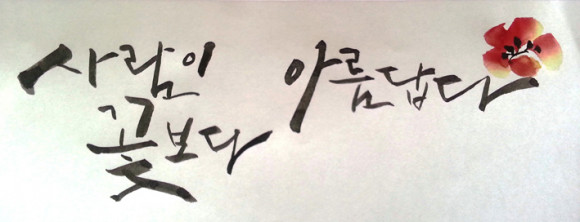 사람이
꽃보다
아름답다